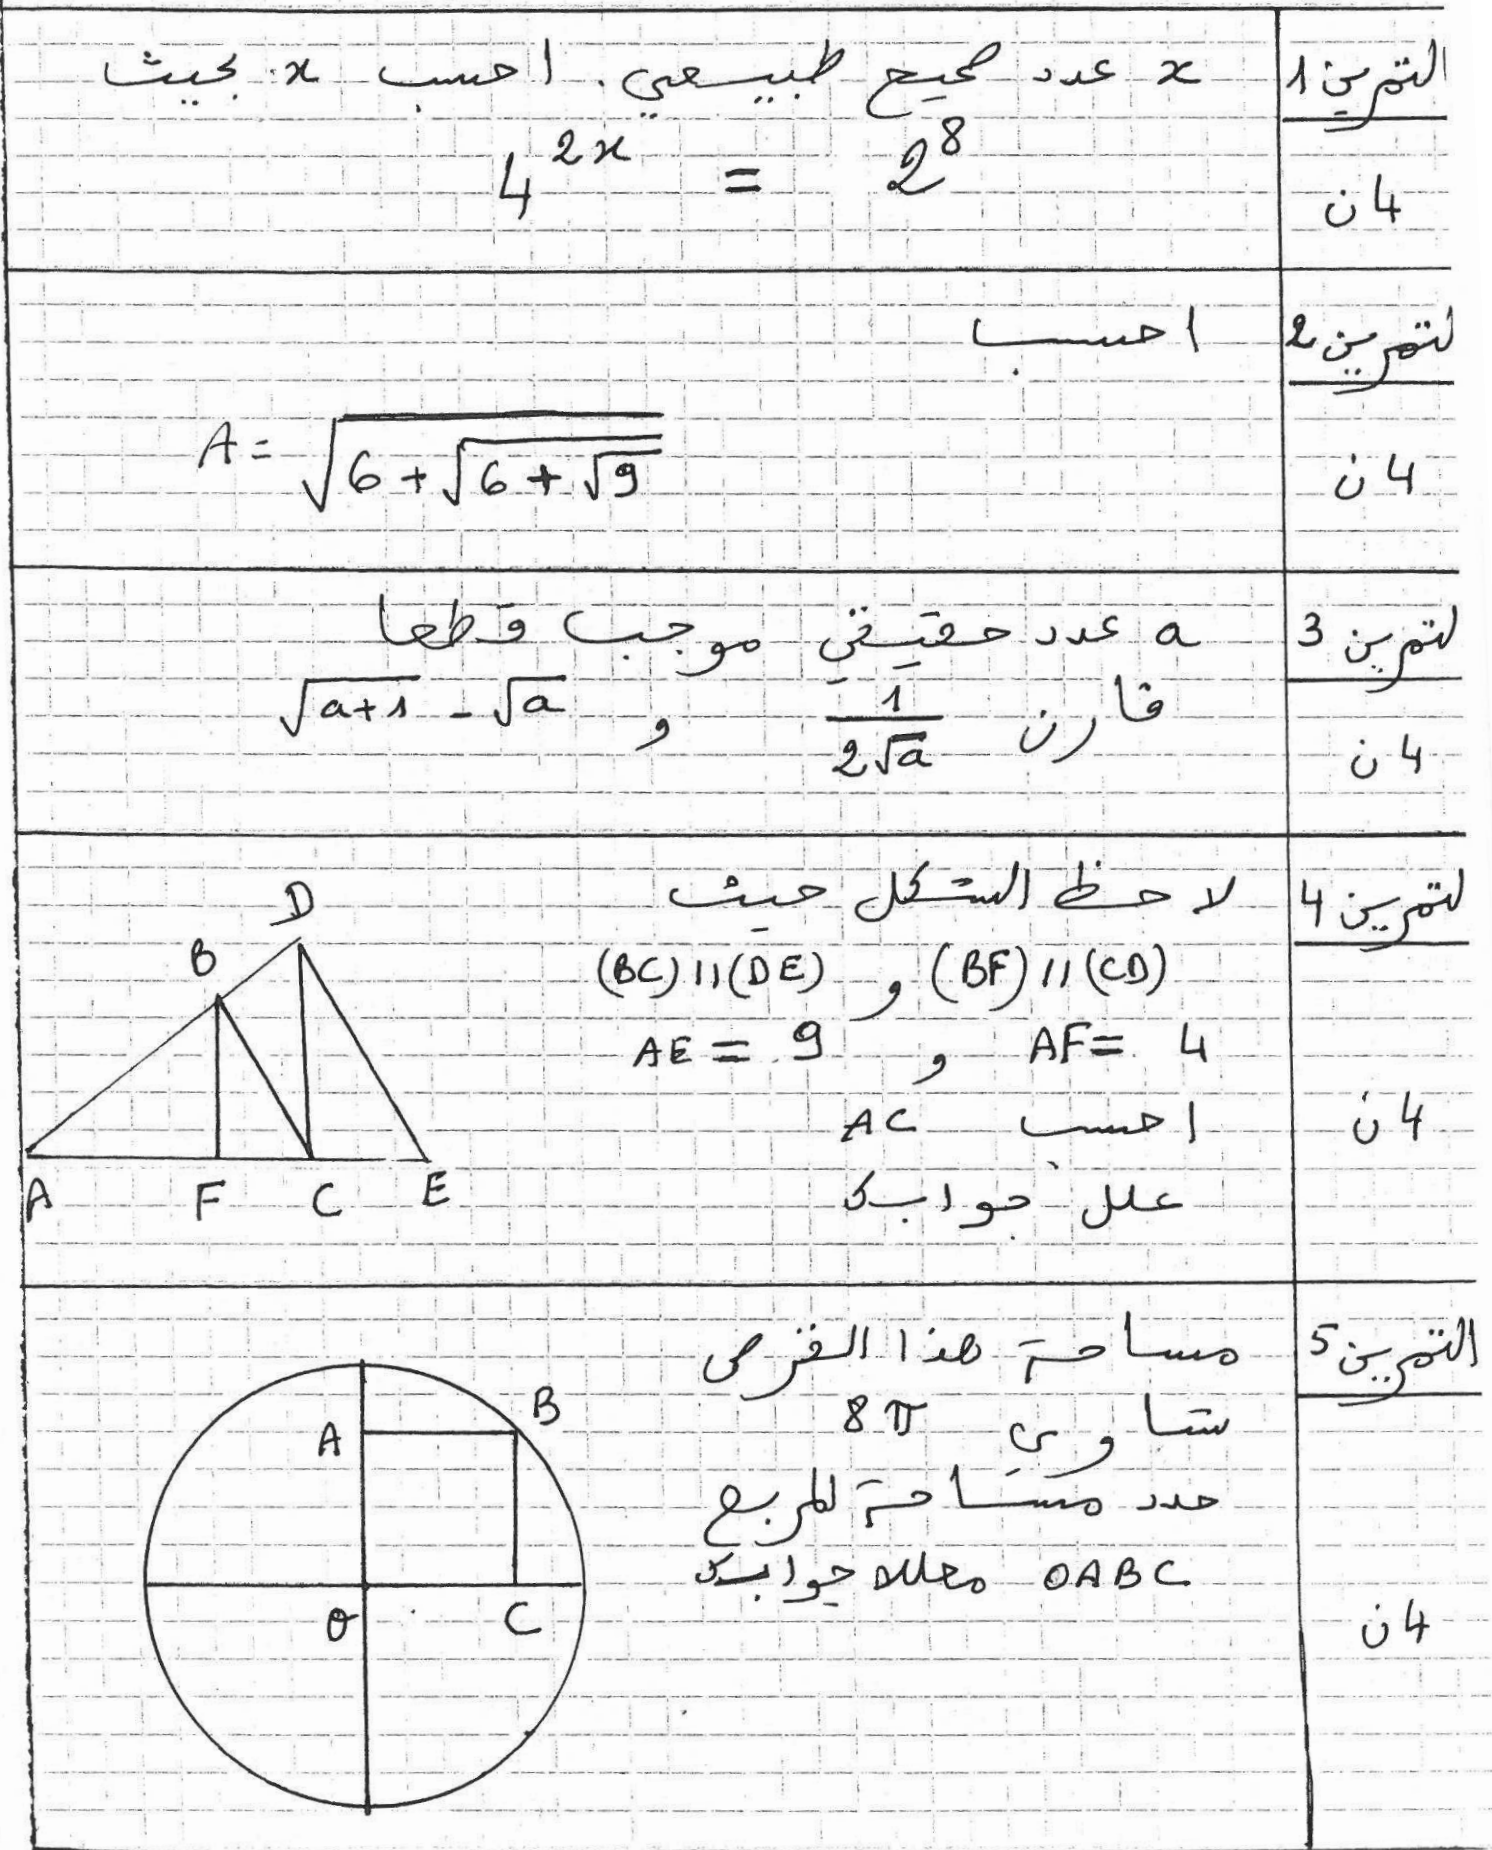 التمرين 1
4 ن
x عدد صحيح طبيعي. احسب x بحيث
4^{2x} = 2^8
لتمرين 2
4 ن
احسب
A = √(6 + √(6 + √9))
لتمرين 3
4 ن
a عدد حقيقي موجب قطعا
قارن 1/(2√a) و √(a+1) - √a
لتمرين 4
4 ن
لاحظ الشكل حيث
(BF) // (CD) و (BC) // (DE)
AF = 4 و AE = 9
احسب AC
علل جوابك
D
B
A F C E
التمرين 5
4 ن
مساحة هذا القرص
تساوي 8π
حدد مساحة المربع
OABC معللا جوابك
B
A
O C